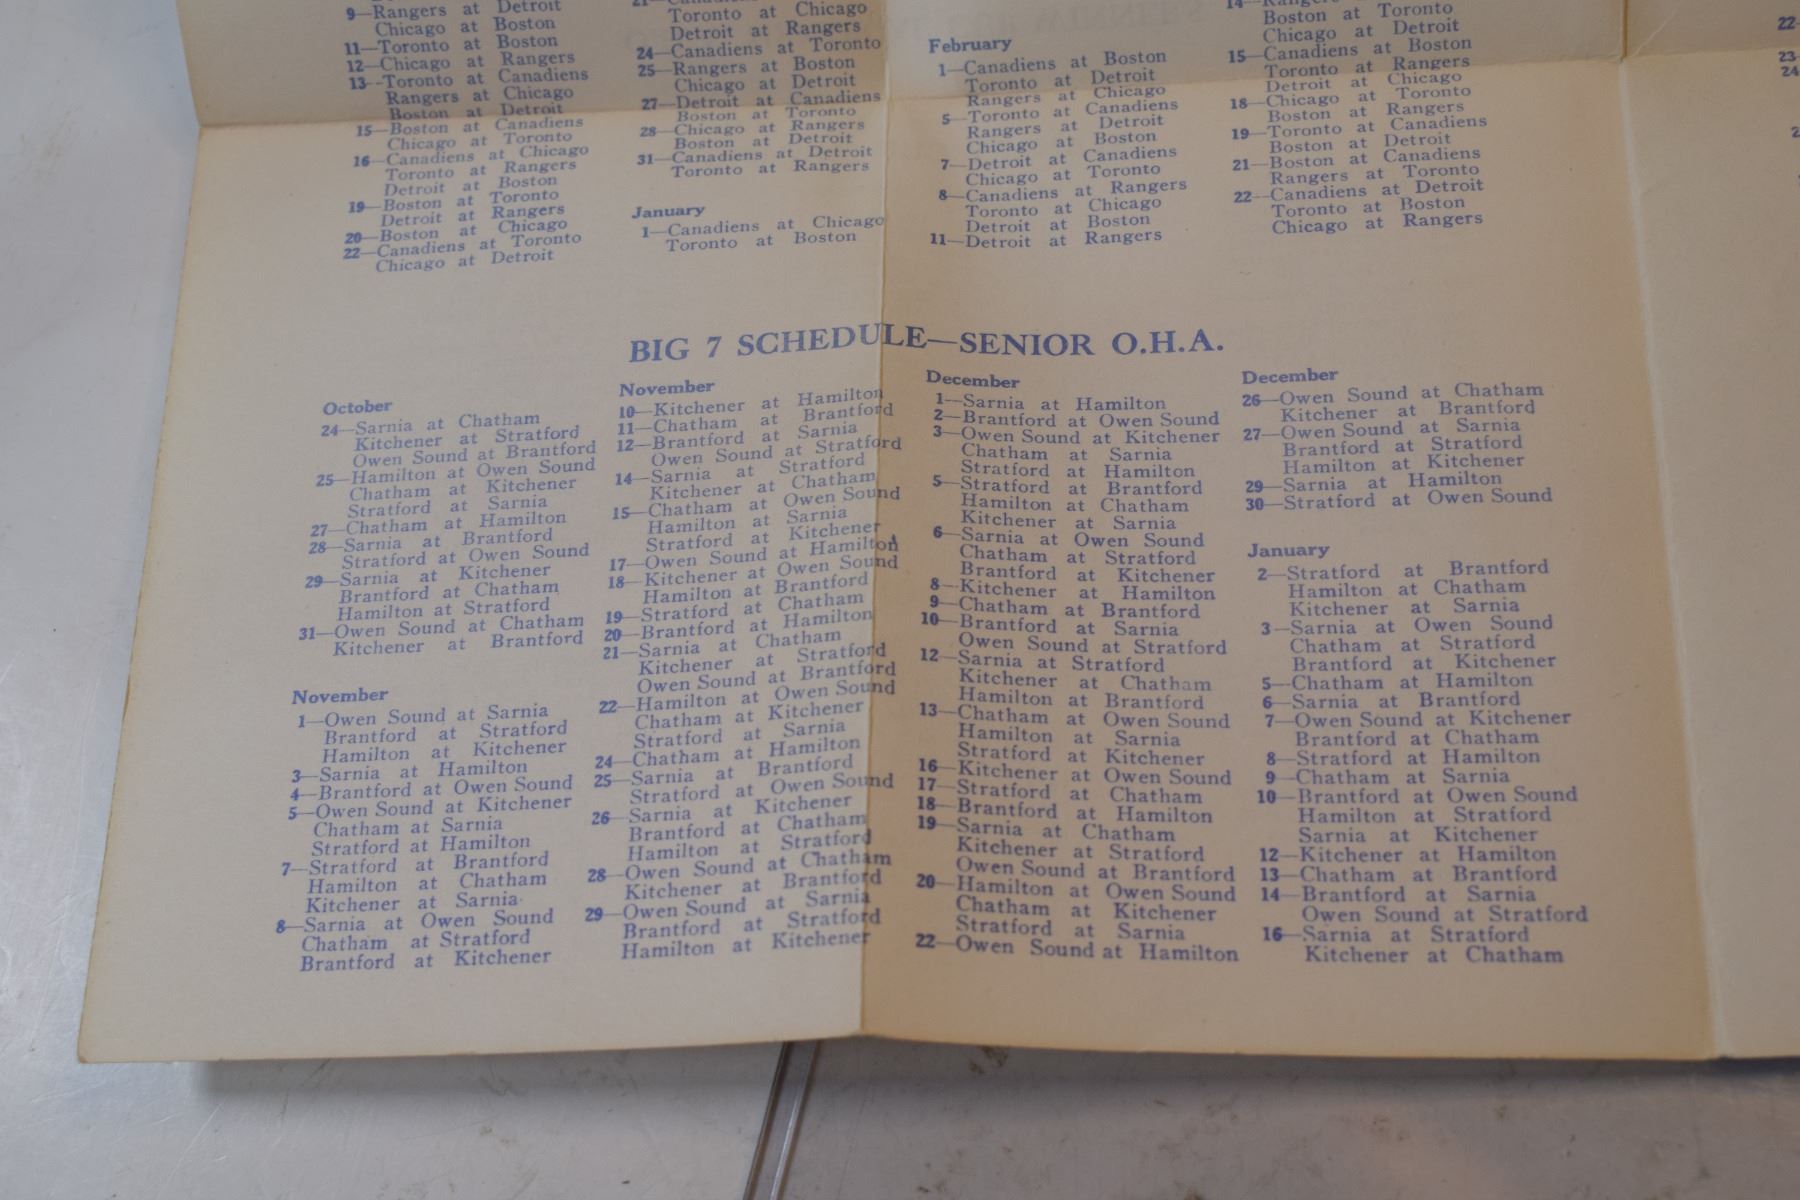 9—Rangers at Detroit
Chicago at Boston
11—Toronto at Boston
12—Chicago at Rangers
13—Toronto at Canadiens
Rangers at Chicago
Boston at Detroit
15—Boston at Canadiens
Chicago at Toronto
16—Canadiens at Chicago
Toronto at Rangers
Detroit at Boston
19—Boston at Toronto
Detroit at Rangers
20—Boston at Chicago
22—Canadiens at Toronto
Chicago at Detroit
Toronto at Chicago
Detroit at Rangers
24—Canadiens at Toronto
25—Rangers at Boston
Chicago at Detroit
27—Detroit at Canadiens
Boston at Toronto
28—Chicago at Rangers
Boston at Detroit
31—Canadiens at Detroit
Toronto at Rangers
January
1—Canadiens at Chicago
Toronto at Boston
February
1—Canadiens at Boston
Toronto at Detroit
Rangers at Chicago
5—Toronto at Canadiens
Rangers at Detroit
Chicago at Boston
7—Detroit at Canadiens
Chicago at Toronto
8—Canadiens at Rangers
Toronto at Chicago
Detroit at Boston
11—Detroit at Rangers
14—Rangers at
Boston at Toronto
Chicago at Detroit
15—Canadiens at Boston
Toronto at Rangers
Detroit at Chicago
18—Chicago at Toronto
Boston at Rangers
19—Toronto at Canadiens
Boston at Detroit
21—Boston at Canadiens
Rangers at Toronto
22—Canadiens at Detroit
Toronto at Boston
Chicago at Rangers
22—
23—
24
BIG 7 SCHEDULE—SENIOR O.H.A.
October
24—Sarnia at Chatham
Kitchener at Stratford
Owen Sound at Brantford
25—Hamilton at Owen Sound
Chatham at Kitchener
Stratford at Sarnia
27—Chatham at Hamilton
28—Sarnia at Brantford
Stratford at Owen Sound
29—Sarnia at Kitchener
Brantford at Chatham
Hamilton at Stratford
31—Owen Sound at Chatham
Kitchener at Brantford
November
1—Owen Sound at Sarnia
Brantford at Stratford
Hamilton at Kitchener
3—Sarnia at Hamilton
4—Brantford at Owen Sound
5—Owen Sound at Kitchener
Chatham at Sarnia
Stratford at Hamilton
7—Stratford at Brantford
Hamilton at Chatham
Kitchener at Sarnia
8—Sarnia at Owen Sound
Chatham at Stratford
Brantford at Kitchener
November
10—Kitchener at Hamilton
11—Chatham at Brantford
12—Brantford at Sarnia
Owen Sound at Stratford
14—Sarnia at Stratford
Kitchener at Chatham
15—Chatham at Owen Sound
Hamilton at Sarnia
Stratford at Kitchener
17—Owen Sound at Hamilton
18—Kitchener at Owen Sound
Hamilton at Brantford
19—Stratford at Chatham
20—Brantford at Hamilton
21—Sarnia at Chatham
Kitchener at Stratford
Owen Sound at Brantford
22—Hamilton at Owen Sound
Chatham at Kitchener
Stratford at Sarnia
24—Chatham at Hamilton
25—Sarnia at Brantford
Stratford at Owen Sound
26—Sarnia at Kitchener
Brantford at Chatham
Hamilton at Stratford
28—Owen Sound at Chatham
Kitchener at Brantford
29—Owen Sound at Sarnia
Brantford at Stratford
Hamilton at Kitchener
December
1—Sarnia at Hamilton
2—Brantford at Owen Sound
3—Owen Sound at Kitchener
Chatham at Sarnia
Stratford at Hamilton
5—Stratford at Brantford
Hamilton at Chatham
Kitchener at Sarnia
6—Sarnia at Owen Sound
Chatham at Stratford
Brantford at Kitchener
8—Kitchener at Hamilton
9—Chatham at Brantford
10—Brantford at Sarnia
Owen Sound at Stratford
12—Sarnia at Stratford
Kitchener at Chatham
Hamilton at Brantford
13—Chatham at Owen Sound
Hamilton at Sarnia
Stratford at Kitchener
16—Kitchener at Owen Sound
17—Stratford at Chatham
18—Brantford at Hamilton
19—Sarnia at Chatham
Kitchener at Stratford
Owen Sound at Brantford
20—Hamilton at Owen Sound
Chatham at Kitchener
Stratford at Sarnia
22—Owen Sound at Hamilton
December
26—Owen Sound at Chatham
Kitchener at Brantford
27—Owen Sound at Sarnia
Brantford at Stratford
Hamilton at Kitchener
29—Sarnia at Hamilton
30—Stratford at Owen Sound
January
2—Stratford at Brantford
Hamilton at Chatham
Kitchener at Sarnia
3—Sarnia at Owen Sound
Chatham at Stratford
Brantford at Kitchener
5—Chatham at Hamilton
6—Sarnia at Brantford
7—Owen Sound at Kitchener
Brantford at Chatham
8—Stratford at Hamilton
9—Chatham at Sarnia
10—Brantford at Owen Sound
Hamilton at Stratford
Sarnia at Kitchener
12—Kitchener at Hamilton
13—Chatham at Brantford
14—Brantford at Sarnia
Owen Sound at Stratford
16—Sarnia at Stratford
Kitchener at Chatham